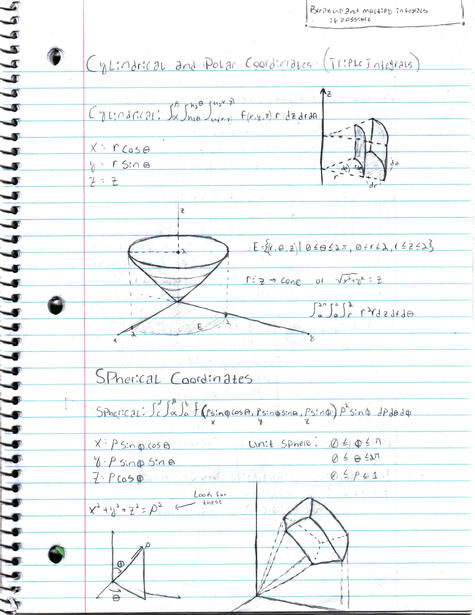 Break up and multiply integrals
if possible
Cylindrical and Polar Coordinates (Triple Integrals)
Cylindrical: ∫∫∫ F(x,y,z) r dz dr dθ
x = r cos θ
y = r sin θ
z = z
z
dz
dr
z
2
E = {(r, θ, z) | 0 ≤ θ ≤ 2π, 0 ≤ r ≤ 2, r ≤ z ≤ 2}
r = z → cone or √x²+y² = z
∫₀^2π ∫₀^2 ∫ᵣ^2 r² r dz dr dθ
x
2
E
2
y
Spherical Coordinates
Spherical: ∫∫∫ f(ρ sin φ cos θ, ρ sin φ sin θ, ρ sin φ) ρ² sin φ dρ dθ dφ
x
y
z
x = ρ sin φ cos θ
Unit Sphere: 0 ≤ φ ≤ π
y = ρ sin φ sin θ
0 ≤ θ ≤ 2π
z = ρ cos φ
0 ≤ ρ ≤ 1
x² + y² + z² = ρ²
← Look for these
ρ
θ